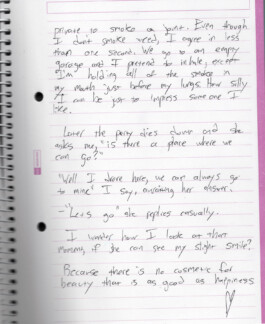 private to smoke a joint. Even though
I don't smoke weed, I agree in less
than one second. We go to an empty
garage and I pretend to inhale, except
I'm holding all of the smoke in
my mouth just before my lungs. How silly
I can be just to impress someone I
like.
Later the party dies down and she
asks me, "is there a place where we
can go?"
"Well I live here, we can always go
to mine" I say, awaiting her answer.
-"Let's go" she replies casually.
I wonder how I look at that
moment, if she can see my slight smile?
Because there is no cosmetic for
beauty that is as good as happiness